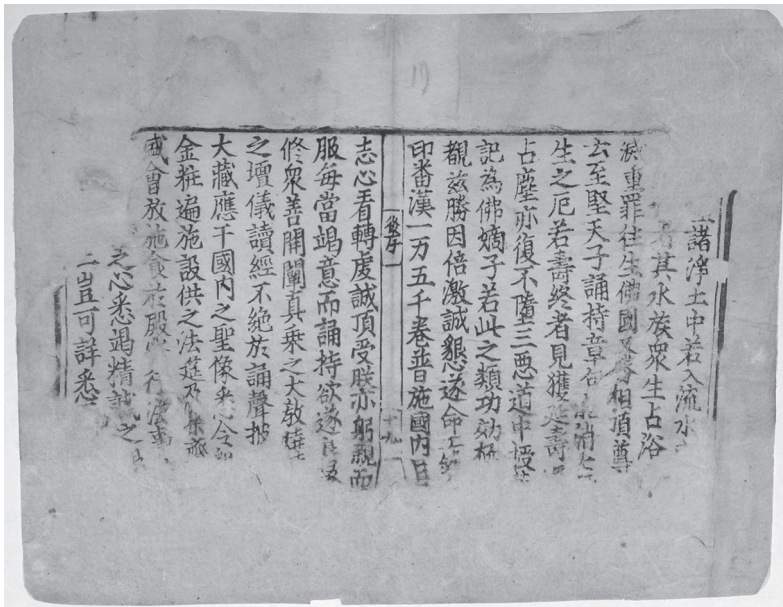 諸淨土中若入流水
其水族衆生占浴
滅重罪往生佛國又勝相頂尊
云至堅天子誦持章句能消七
生之厄若壽終者見獲延壽遇
占塵亦復不墮三惡道中授菩
記為佛嫡子若此之類功効極
覩兹勝因倍激誠懇遂命工鏤
印番漢一万五千卷普施國內臣
後序
十九
志心看轉虔誠頂受朕亦躬親而
服每當竭意而誦持欲遂良緣
修衆善開闡真乘之大教燒
之壇儀讀經不絶於誦聲披
大藏應干國內之聖像悉令
金粧遍施設供之法筵及集齋
盛會放施食於殿宇行法事
之心悉竭精誠之
二豈可詳悉